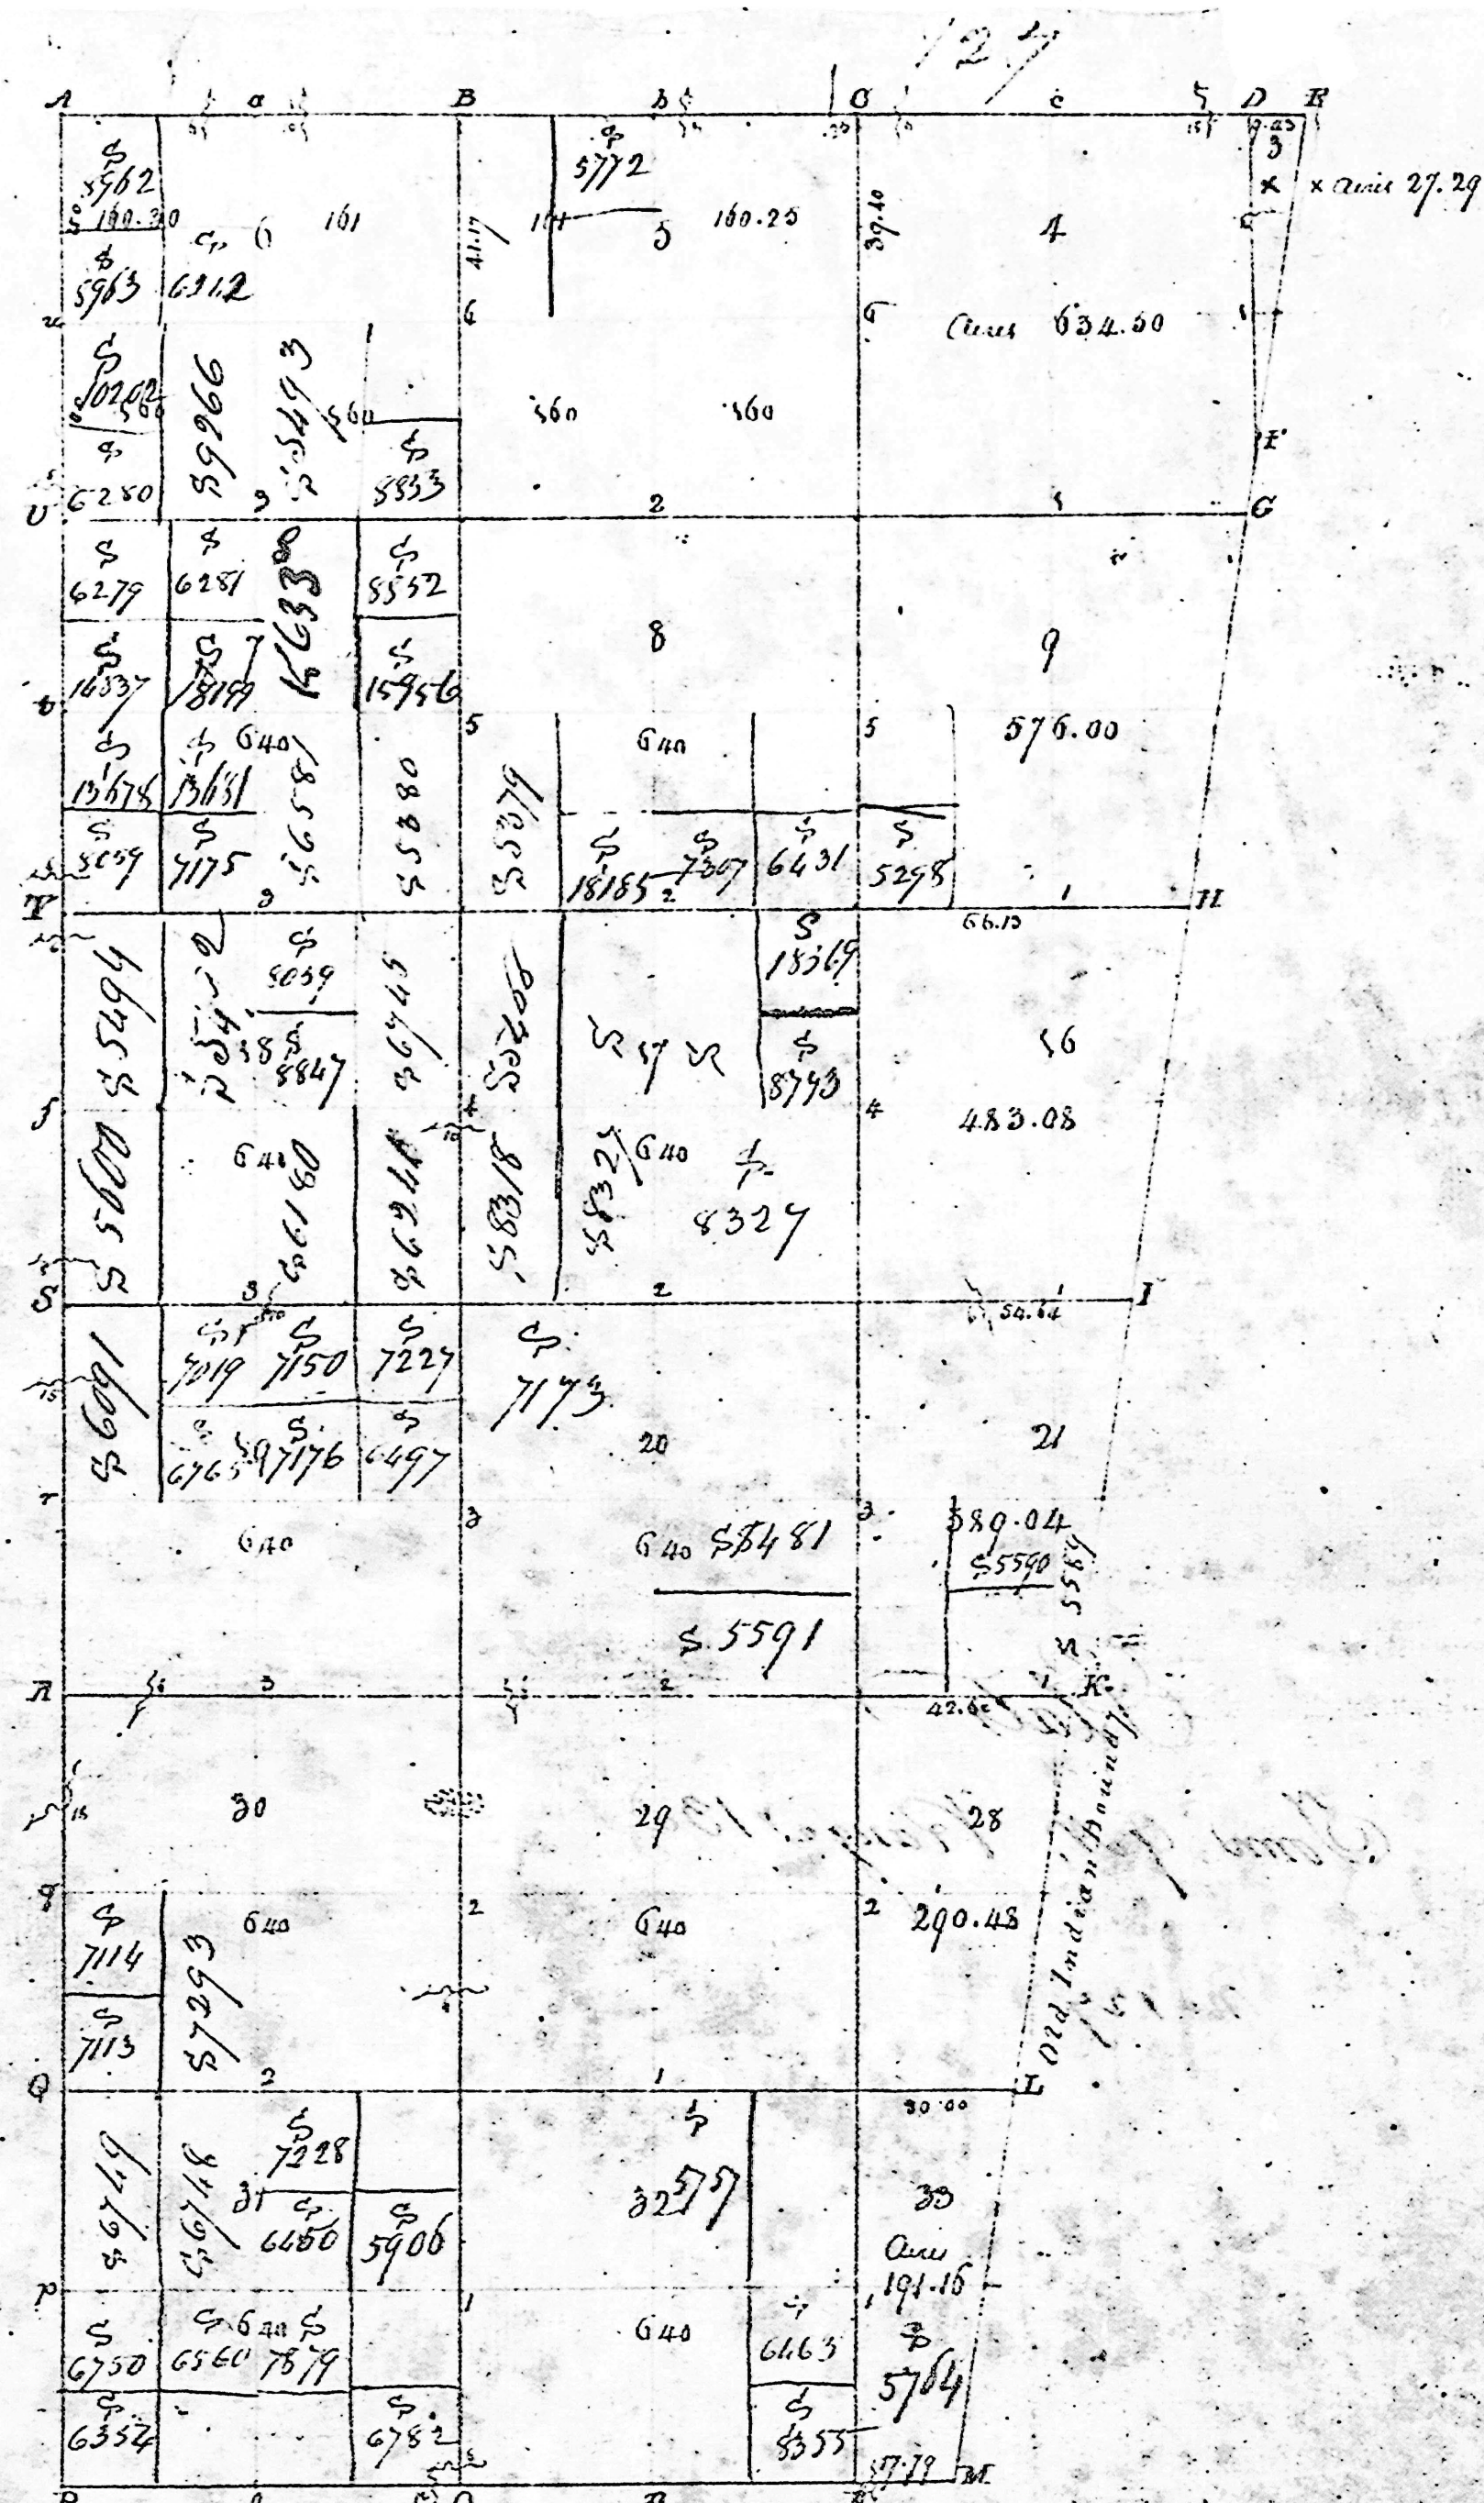 127
A a B b C c D R
S 5962
160.30
S 5963
S 6212
6
161
41.17
S 5772
5
160.25
39.40
4
Acres 634.50
9.23
3
x
x acres 27.29
6
S 10202
S 6280
S 9266
S 5493
160
S 8853
160
160
U
3
2
1
G
S 6279
S 6281
S 8552
8
9
S 16837
S 18199
7
S 15956
640
5
640
5
576.00
S 13678
S 13681
S 6581
S 5380
S 5379
S 8059
S 7175
S 18185
S 7307
S 6431
S 5298
T
3
2
1
H
66.13
S 5494
S 8059
S 6745
S 18369
18
S 8847
17
S 8793
16
4
4
483.08
S 5600
640
S 6180
S 8318
S 8327
640
S 8327
S
3
2
1
I
54.64
S 6091
S 7019
S 7150
S 7227
S 7173
S 6765
19
S 7176
S 6497
20
21
r
3
3
640
640
S 5481
389.04
S 5590
S 5589
S 5591
R
3
2
1
K
42.60
30
29
28
q
2
2
S 7114
S 7293
640
640
290.48
S 7113
Old Indian Boundy
Q
2
1
L
30.00
S 6749
S 6748
S 7228
31
S 6460
S 5906
32
S 5757
33
Acres
191.16
p
1
1
S 6750
S 6560
640
S 7879
640
S 6463
S 5764
S 6354
S 6782
S 8355
17.79
M